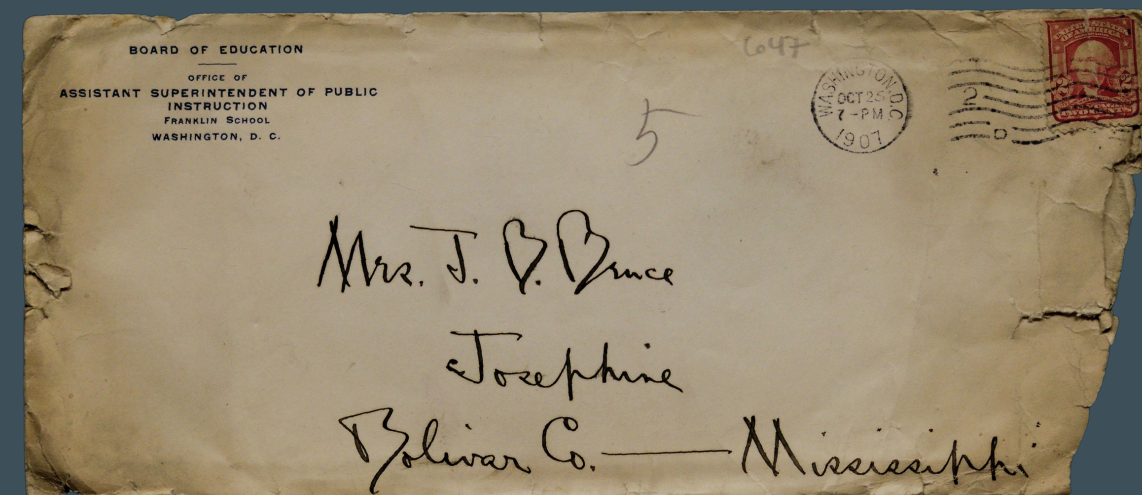 BOARD OF EDUCATION
OFFICE OF
ASSISTANT SUPERINTENDENT OF PUBLIC
INSTRUCTION
FRANKLIN SCHOOL
WASHINGTON, D. C.
647
5
WASHINGTON, D.C.
OCT 25
7-PM
1907
2
D
Mrs. J. B. Bruce
Josephine
Bolivar Co. — Mississippi